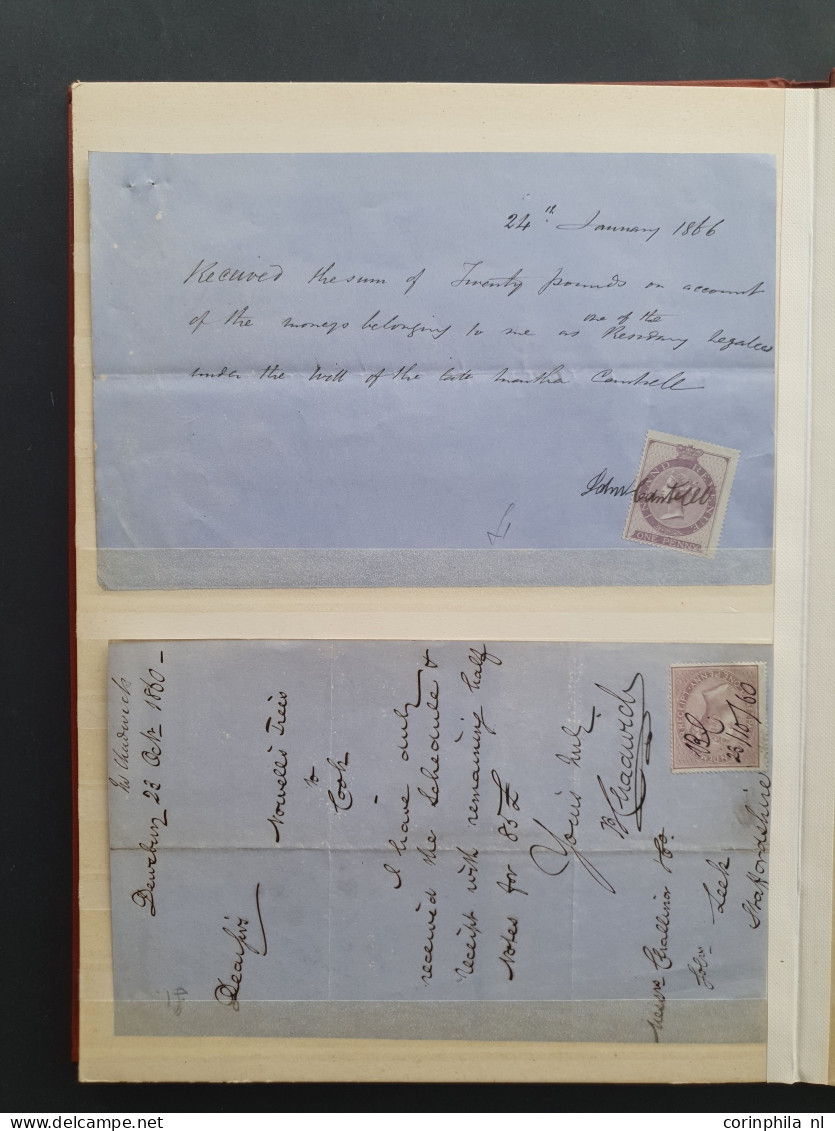 24th January 1866
Received the sum of Twenty pounds on account
one of the
of the moneys belonging to me as Residuary Legatees
under the Will of the late Martha Cantrell
John Cantrell
INLAND REVENUE
ONE PENNY
Chadwick
Dewsbury 23 Octr 1860
Dear Sirs
Nowell's Trees
to
Cook
I have duly
received the Schedule &
receipt with remaining half
Notes for 85£
Yours truly
Chadwick
RECEIPT
23/10/60
Messrs Challinor & Co.
Solrs Leek
Staffordshire
www.delcampe.net
corinphila nl